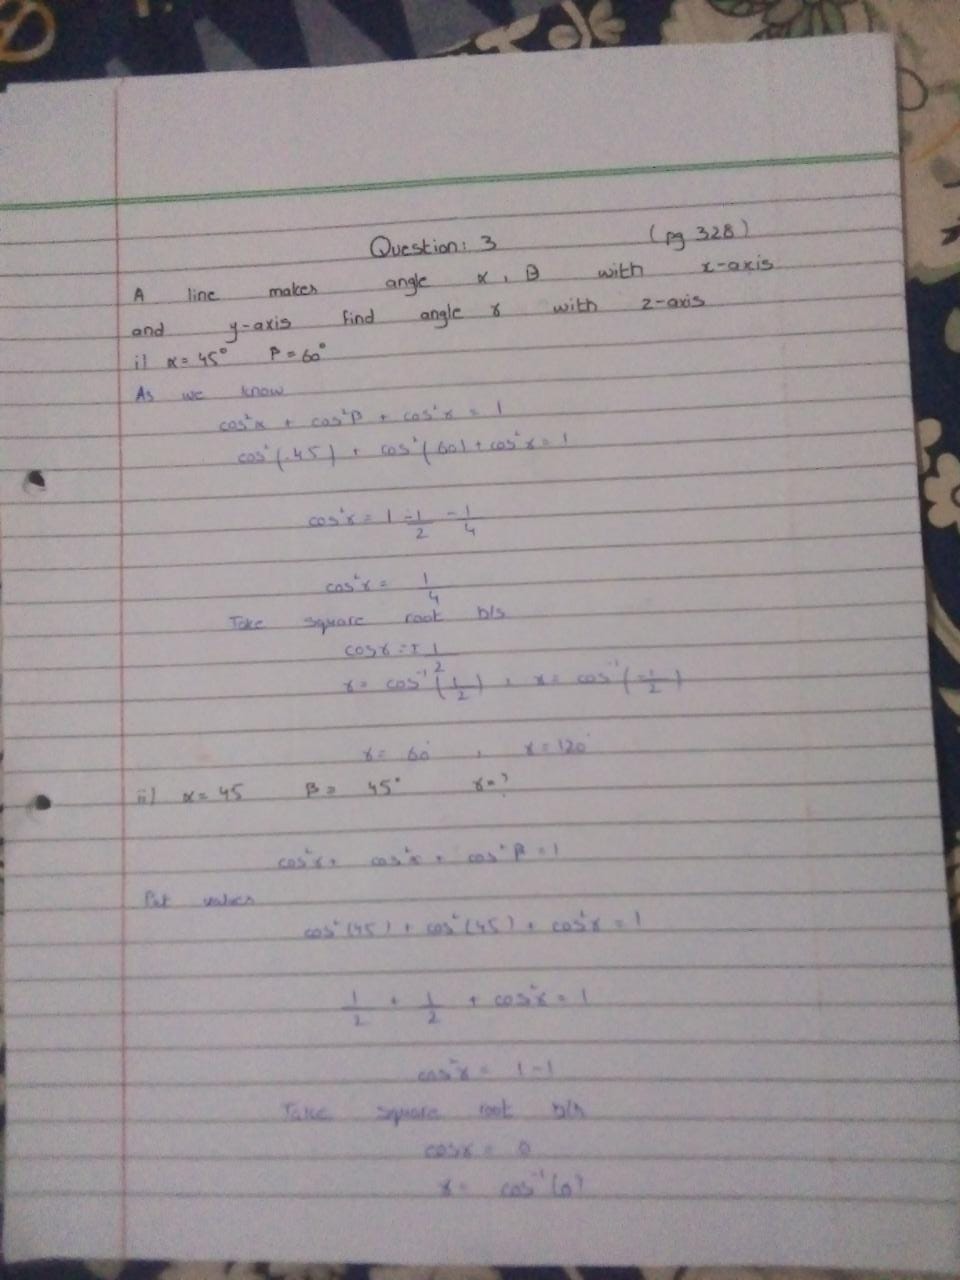 Question: 3 (pg 328)
A line makes angle α, β with x-axis
and y-axis find angle γ with z-axis
i) α = 45° β = 60°
As we know
cos²α + cos²β + cos²γ = 1
cos²(45) + cos²(60) + cos²γ = 1
cos²γ = 1 - 1/2 - 1/4
cos²γ = 1/4
Take square root b/s
cosγ = ± 1/2
γ = cos⁻¹(1/2) , γ = cos⁻¹(-1/2)
γ = 60° , γ = 120°
ii) α = 45 β = 45° γ = ?
cos²γ + cos²α + cos²β = 1
Put values
cos²(45) + cos²(45) + cos²γ = 1
1/2 + 1/2 + cos²γ = 1
cos²γ = 1 - 1
Take square root b/s
cosγ = 0
γ = cos⁻¹(0)